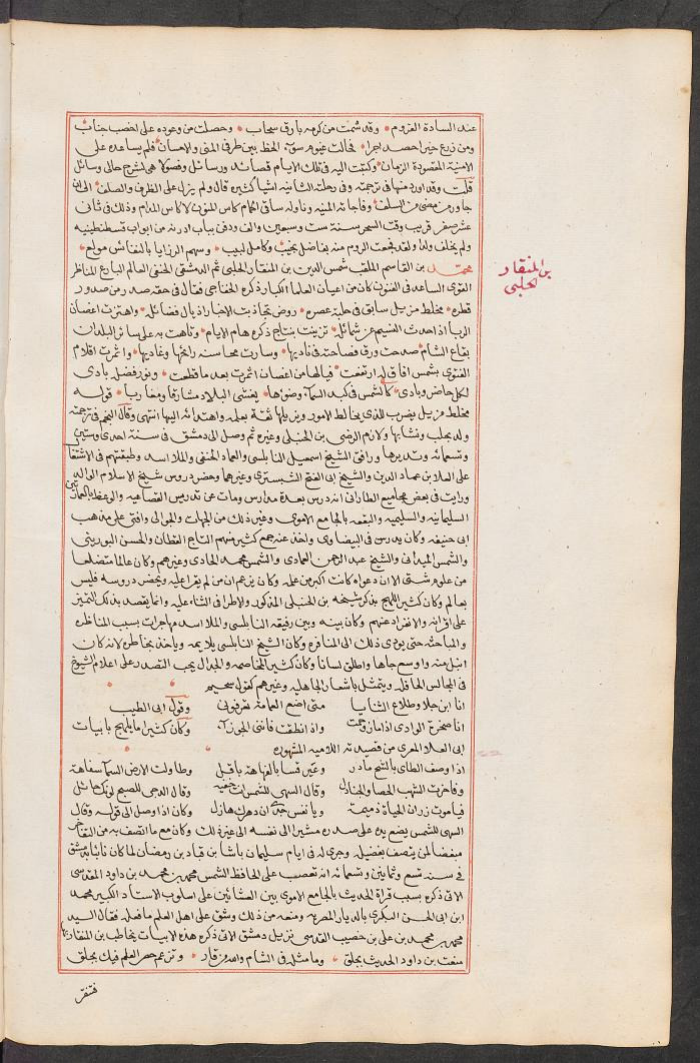 عند السادة القروم وقد شمت من كرمه بارق سحاب وحصلت من وعوده على اخصب جناب
ومن زرع خيرا حصد اجرا فحالت عنهم سوء الحظ بين طرفي المنى والاحسان فلم يساعده على
الامنية المقصودة الزمان وكتبت اليه في تلك الايام قصائد ورسائل وفصولا هي لشرح حالي وسائل
قلت وقد اورد منها في ترجمته وفي رحلته الثانية اشيا كثيره قال ولم يزل على الظرف والصلف الى ان
جاور من مضى من السلف وفاجاته المنيه وناوله ساقي الحمام كاس المنون لا كاس المدام وذلك في ثاني
عشر صفر قريب وقت السحر سنة ست وسبعين والف ودفن بباب ادرنه من ابواب قسطنطينيه
ولم يخلف ولدا ولقد فجعت الروم منه بفاضل نجيب وكامل لبيب وسهم الرزايا بالنفائس مولع
محمد بن القاسم الملقب شمس الدين بن المنقار الحلبي ثم الدمشقي الحنفي العالم البارع المناظر
القوى الساعد في الفنون كان من اعيان العلما الكبار ذكره الخفاجي فقال في حقه صدر من صدور
قطره مخلط مزيل سابق في حلبة عصره روض تجاذبت الاخبار اذيال فضائله واهتزت اغصان
الربا اذ احدث النسيم عن شمائله تزينت بنتاج ذكره هام الايام وتاهت به على سائر البلدان
بقاع الشام صدحت ورق فصاحته في ناديها وسارت محاسنه رائحها وغاديها واثمرت اقلام
الفتوى بشمس افاق له ارتفعت فيالها من اغصان اثمرت بعد ما قطعت ونور فضله بادي
لكل حاضر وبادي كالشمس في كبد السماء وضوءها يغشى البلاد مشارقا ومغاربا قوله
مخلط مزيل يضرب للذي يخالط الامور ويزيلها ثقة بعلمه واهتدائه اليها انتهى وقال النجم في ترجمته
ولد بحلب ونشا بها ولازم الرضي بن الحنبلي وغيره ثم وصل الى دمشق في سنة احدى وستين
وتسعمائة وتديرها ورافق الشيخ اسمعيل النابلسي والعماد الحنفي والمنلا اسد وطبقتهم في الاشتغال
على العلا بن عماد الدين والشيخ ابي الفتح الشبستري وغيرهما وحضر دروس شيخ الاسلام الوالد
ورايت في بعض مجاميع الطاراني انه درس بعدة مدارس ومات عن تدريس القصاعيه والوعظ بالعمارتين
السليمانيه والسليميه والبقعه بالجامع الاموي وغير ذلك من الجهات والجوالى وافتى على مذهب
ابي حنيفه وكان يدرس في البيضاوي واخذ عنه جمع كثير منهم التاج القطان والحسن البوريني
والشمس الميداني والشيخ عبد الرحمن العمادي والشمس محمد الحادي وغيرهم وكان عالما متضلعا
من علوم شتى الا ان دعواه كانت اكبر من علمه وكان يزعم ان من لم يقرا عليه ويحضر دروسه فليس
بعالم وكان كثير اللهج بذكر شيخه بن الحنبلي المذكور والاطرا في الثناء عليه وانما يقصد بذلك التميز
على اقرانه والانفراد عنهم وكان بينه وبين رفيقه النابلسي والمنلا اسد مهاجرات بسبب المناظره
والمباحثه حتى يودي ذلك الى المنافره وكان الشيخ النابلسي يلايمه وياخذ بخاطره لانه كان
انبل منه واوسع جاها واطلق لسانا وكان كثير المخاصمه والجدال يحب التصدر على اعلام الشيوخ
في المجالس الحافله ويتمثل باشعار الجاهليه وغيرهم كقول سحيم
انا ابن جلا وطلاع الثنايا متى اضع العمامة تعرفوني وقول ابي الطيب
انا صخرة الوادي اذا ما زوحمت واذا نطقت فانني الجوزاء وكان كثيرا ما يلهج بابيات
ابي العلا المعري من قصيدته اللاميه المشهوره
اذا وصف الطائي بالشح مادر وعير قسا بالفهاهة باقل وطاولت الارض السماء سفاهة
وفاخرت الشهب الحصا والجنادل وقال السهى للشمس انت خفيه وقال الدجى للصبح لونك حائل
فيا موت زر ان الحياة ذميمة ويا نفس جدى ان دهرك هازل وكان اذا وصل الى قوله وقال
السهى للشمس يضع يده على صدره مشيرا الى نفسه الى غير ذلك وكان مع ما اتصف به من التفاخر
مبغضا لمن يتصف بفضيله وجرى له في ايام سليمان باشا بن قباد بن رمضان لما كان نائبا بدمشق
في سنة تسع وثمانين وتسعمائة انه تعصب على الحافظ الشمس محمد بن محمد بن داود المقدسي
الاتي ذكره بسبب قراة الحديث بالجامع الاموي بين العشائين على اسلوب الاستاد الكبير محمد
ابن ابي الحسن البكري بالديار المصريه ومنعه من ذلك وشق على اهل العلم ما فعله فقال السيد
محمد بن محمد بن علي بن خصيب القدسي نزيل دمشق الاتي ذكره هذه الابيات يخاطب بن المنقار
منعت بن داود الحديث بجلق وما مثله في الشام والله من قار وتزعم حصر العلم فيك بجلق
فتفر
بن المنقار
الحلبي